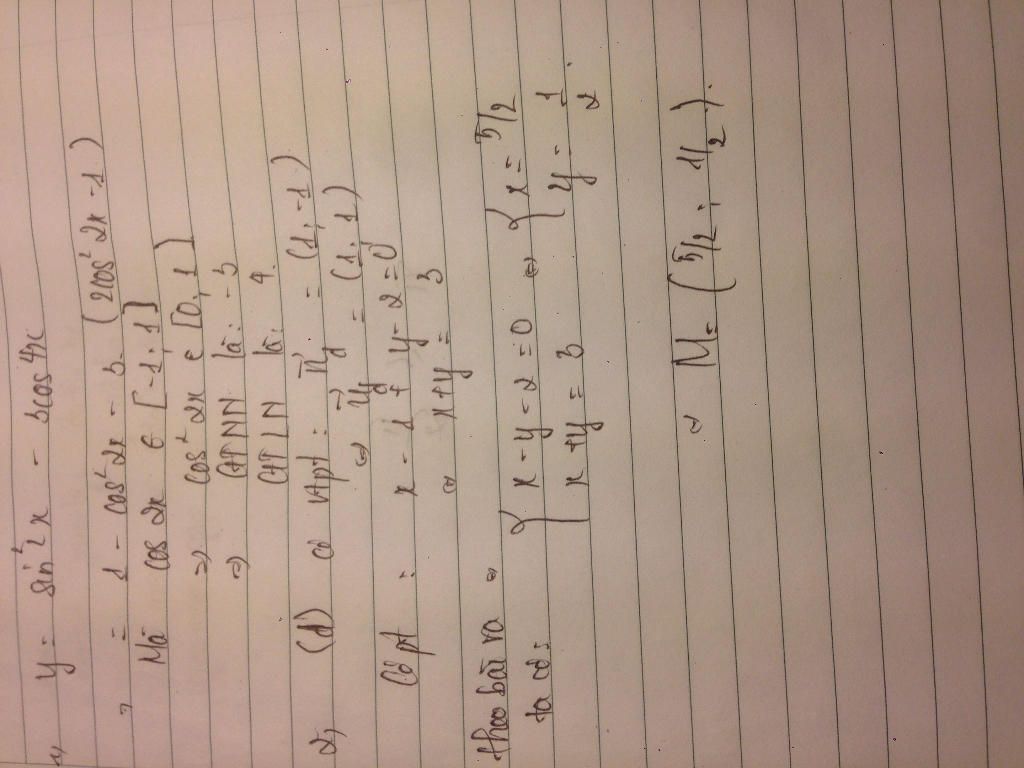 1, y = sin²2x - 3cos4x
= 1 - cos²2x - 3. (2cos²2x - 1)
Mà cos 2x ∈ [-1; 1]
=> cos²2x ∈ [0; 1]
=> GTNN là: -3
GTLN là: 4.
2, (d) có vtpt: n⃗d = (1; -1)
=> u⃗d = (1; 1)
Có pt : x - 1 + y - 2 = 0
⇔ x + y = 3
theo bài ra
ta có: { x - y - 2 = 0 ⇔ { x = 5/2
x + y = 3 y = 1/2.
M = (5/2; 1/2).